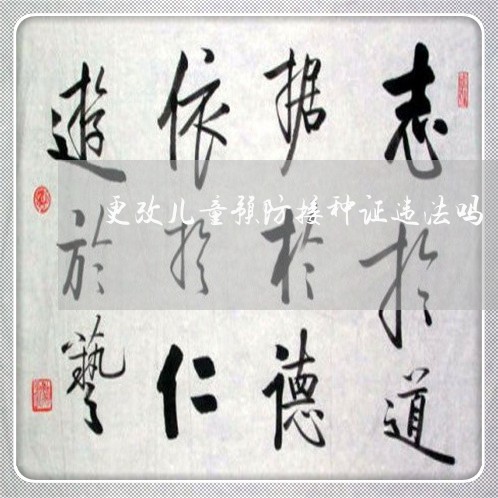 志於道
据於德
依於仁
遊於藝
更改儿童预防接种证违法吗